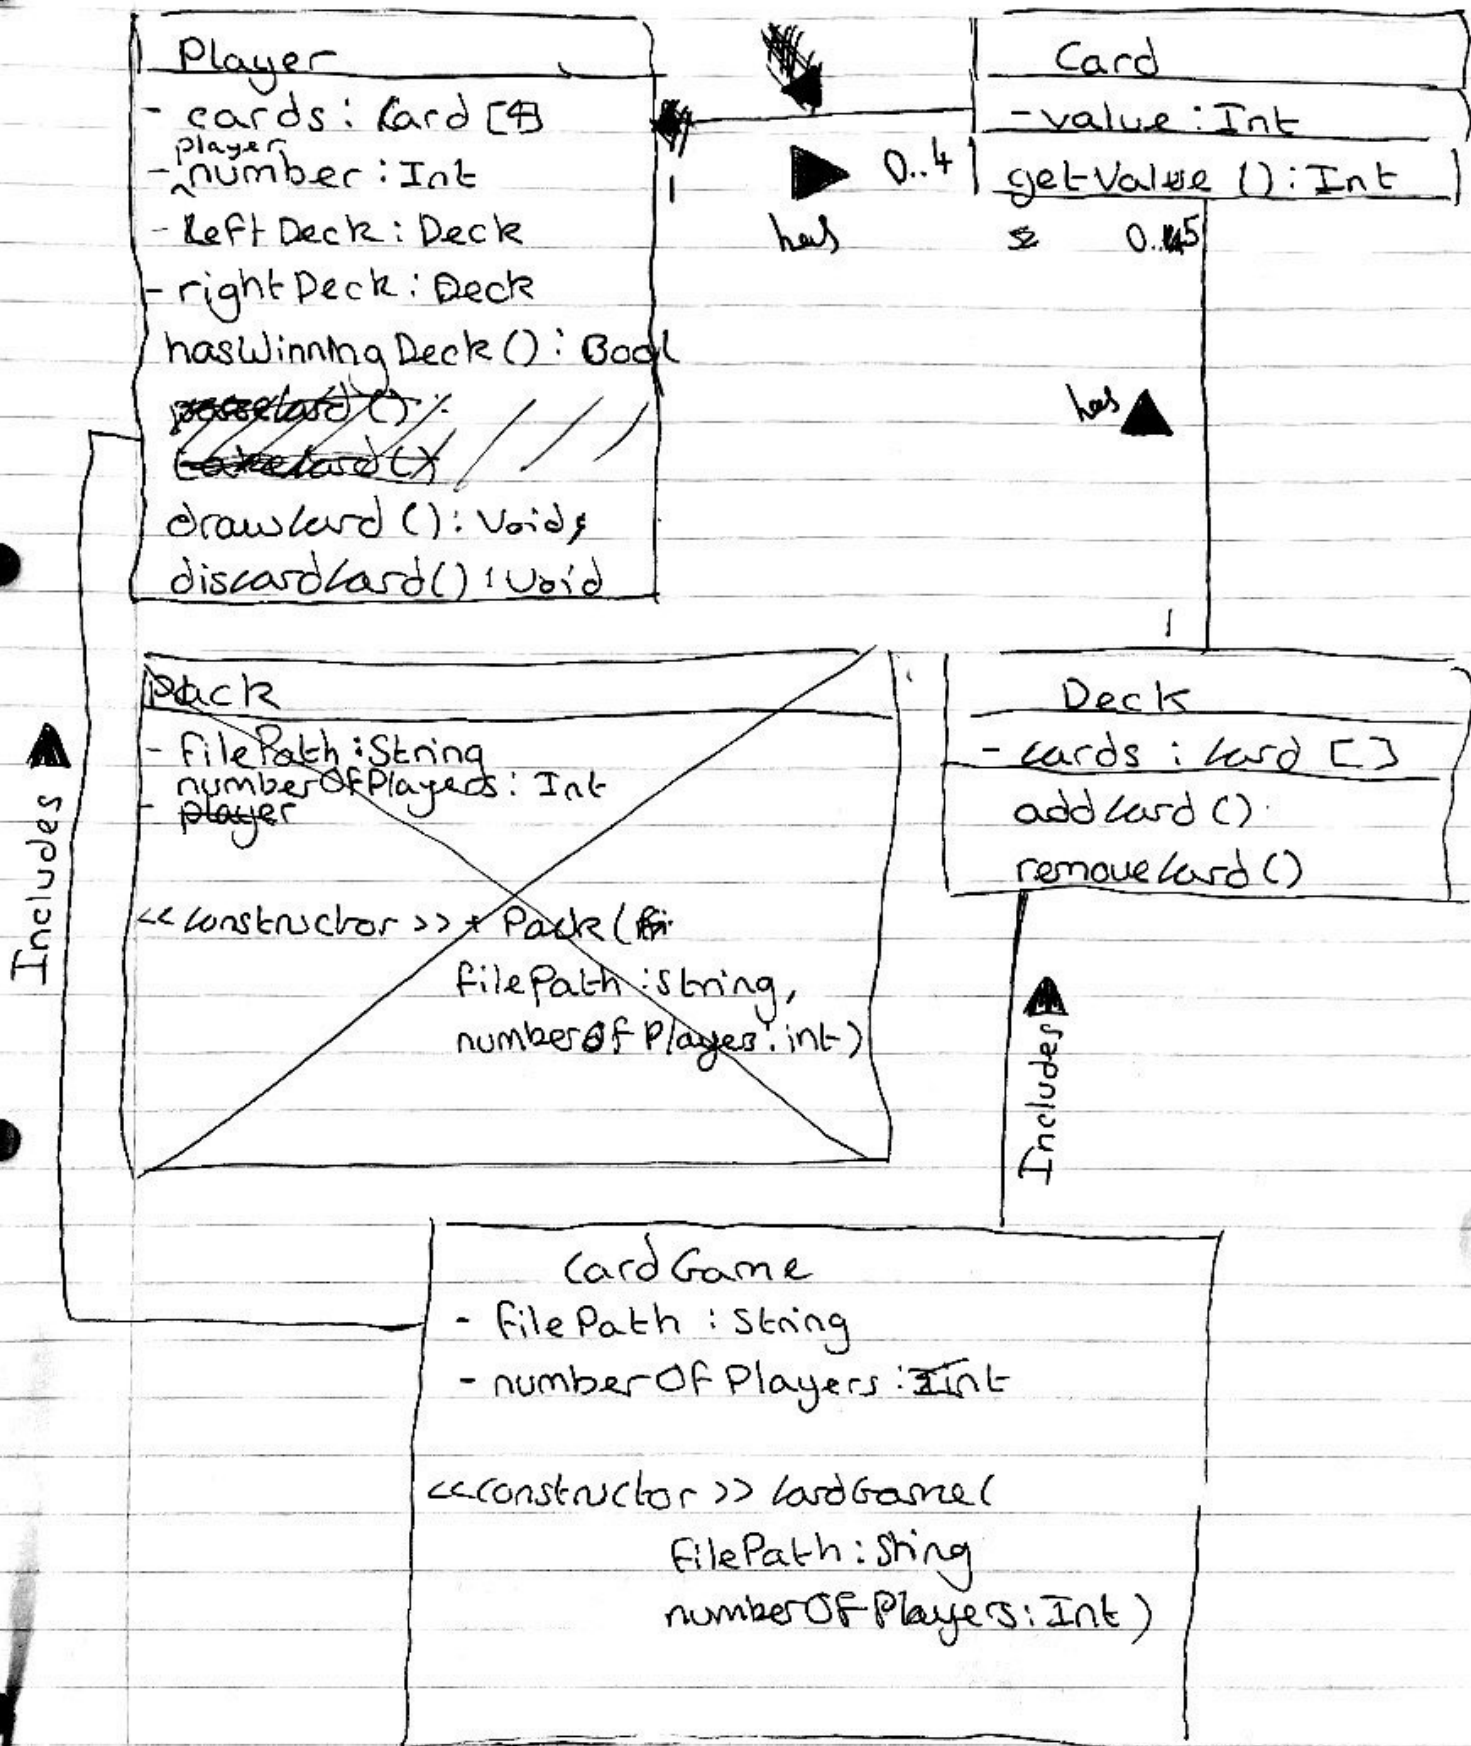 Player
- cards : Card [4]
player
- number : Int
- LeftDeck : Deck
- rightDeck : Deck
hasWinningDeck() : Bool
takeCard()
drawCard () : Void
discardCard() : Void
Card
- value : Int
getValue () : Int
1
0..4
has
0..5
has
1
Pack
- filePath : String
numberOfPlayers : Int
- player
<<constructor>> + Pack(
filePath : String,
numberOfPlayers : int)
Deck
- cards : Card []
addCard ()
removeCard ()
Includes
Includes
CardGame
- filePath : String
- numberOfPlayers : Int
<<constructor>> CardGame(
filePath : String
numberOfPlayers : Int)